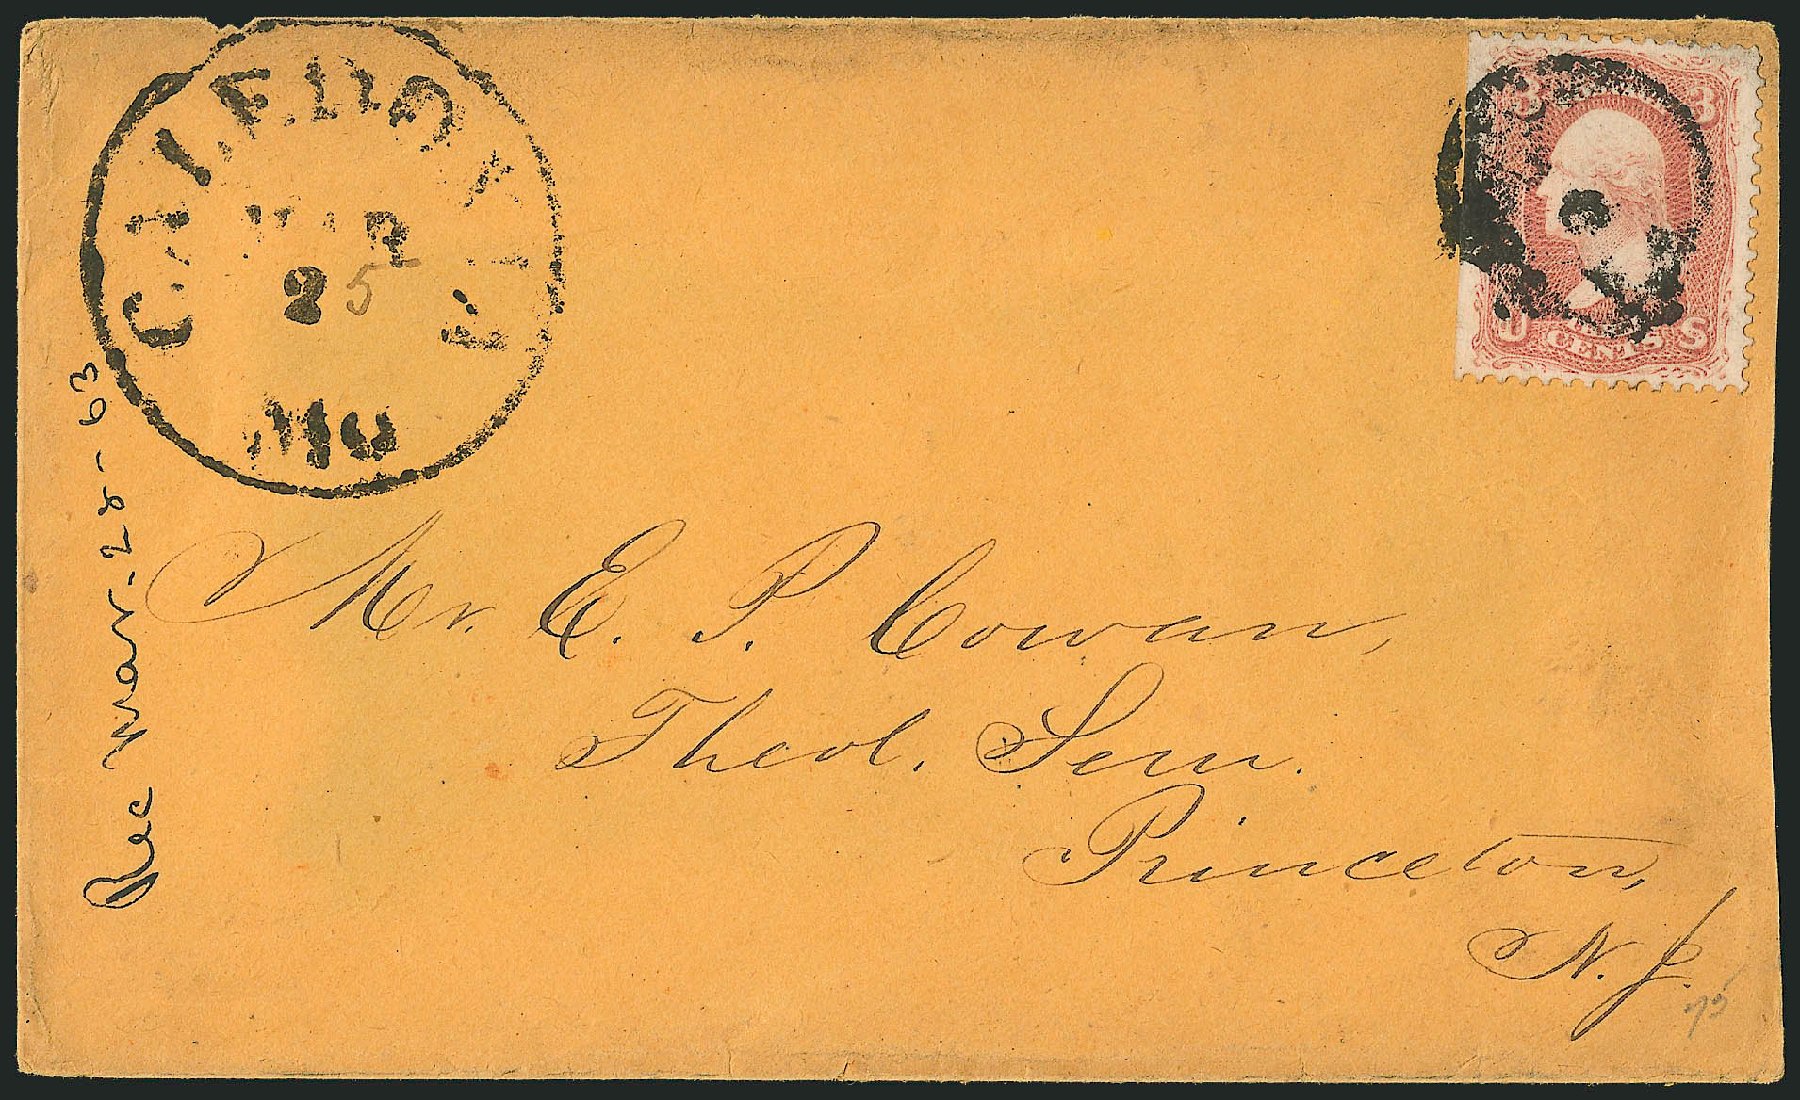 CALEDONIA
MAR
25
Mo
3 3
U CENTS S
Rec Mar-28-63
Mr. E. P. Cowan,
Theol. Sem.
Princeton,
N. J.
75